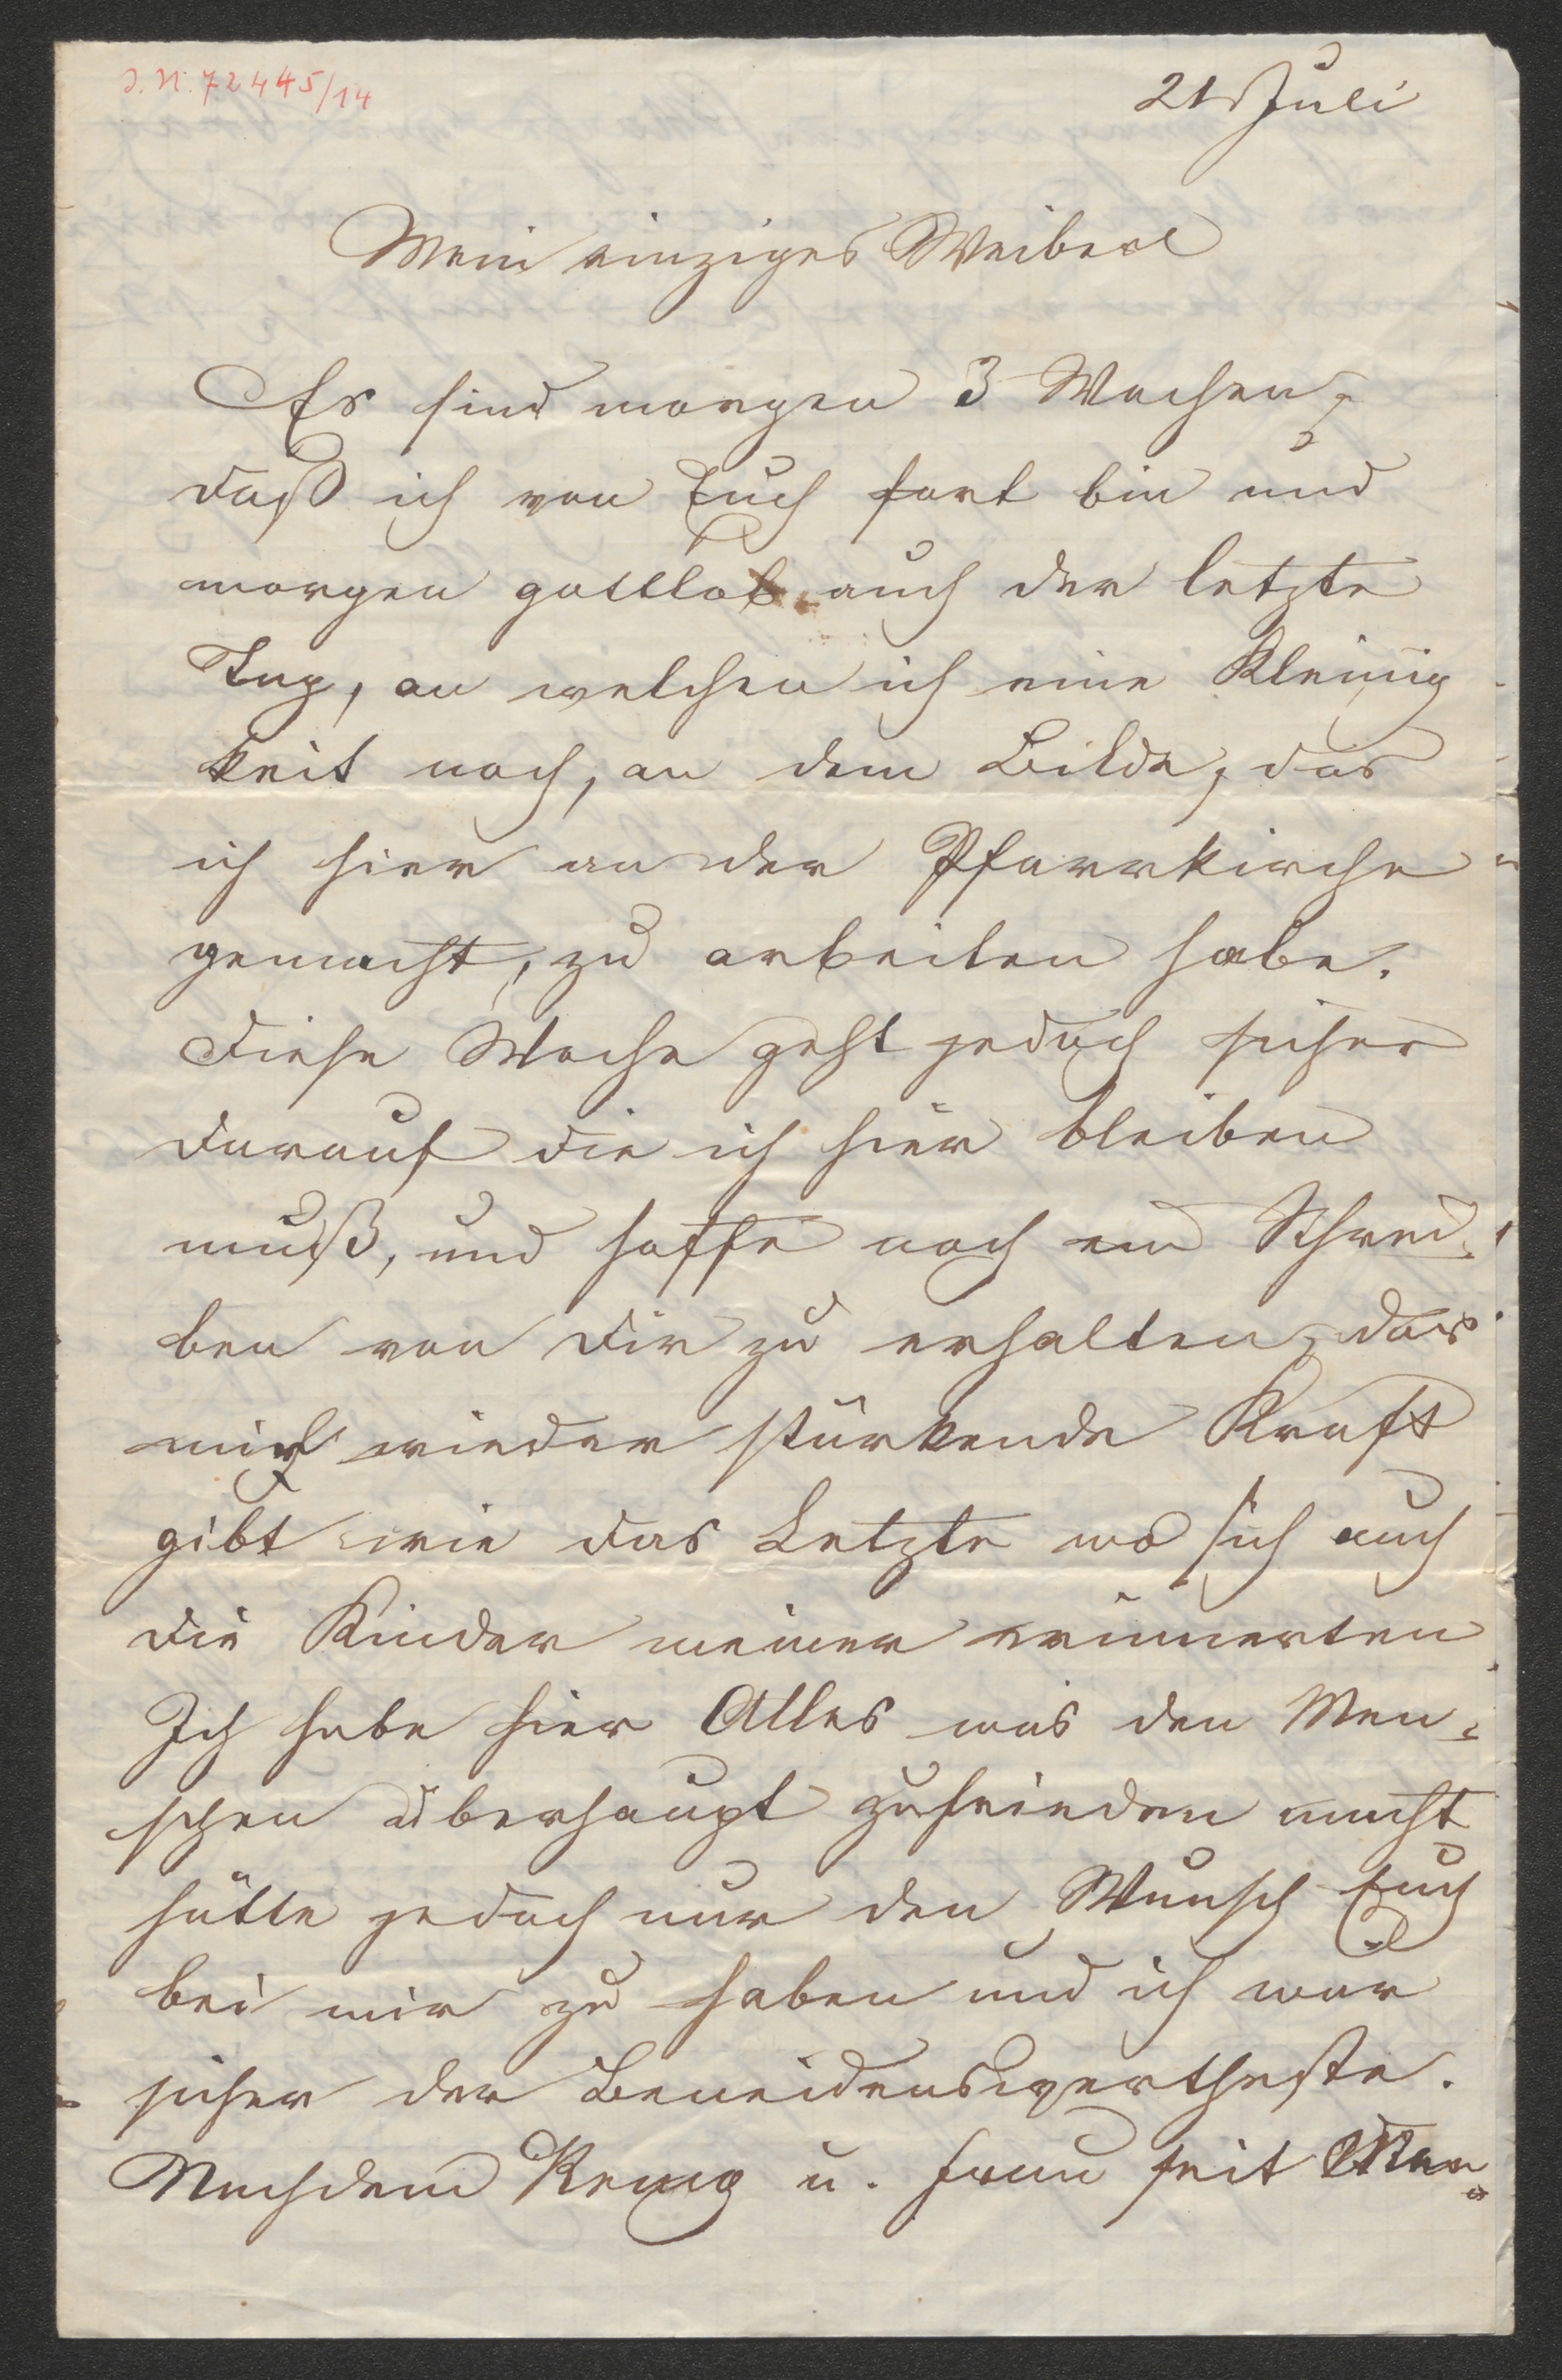 J.N. 72445/14
21 Juli
Mein einziges Weiberl
Es sind morgen 3 Wochen,
daß ich von Euch fort bin und
morgen gottlob auch der letzte
Tag, an welchen ich eine Kleinig
keit noch, an dem Bilde, das
ich hier an der Pfarrkirche
gemacht, zu arbeiten habe.
Diese Woche geht jedoch sicher
darauf die ich hier bleiben
muß, und hoffe noch ein Schrei-
ben von Dir zu erhalten, das
mir wieder stärkende Kraft
gibt wie das Letzte wo sich auch
die Kinder meiner erinnerten
Ich habe hier Alles was den Men-
schen überhaupt zufrieden macht
hätte jedoch nur den Wunsch Euch
bei mir zu haben und ich wär
sicher der Beneidenswertheste.
Nachdem u. Frau seit